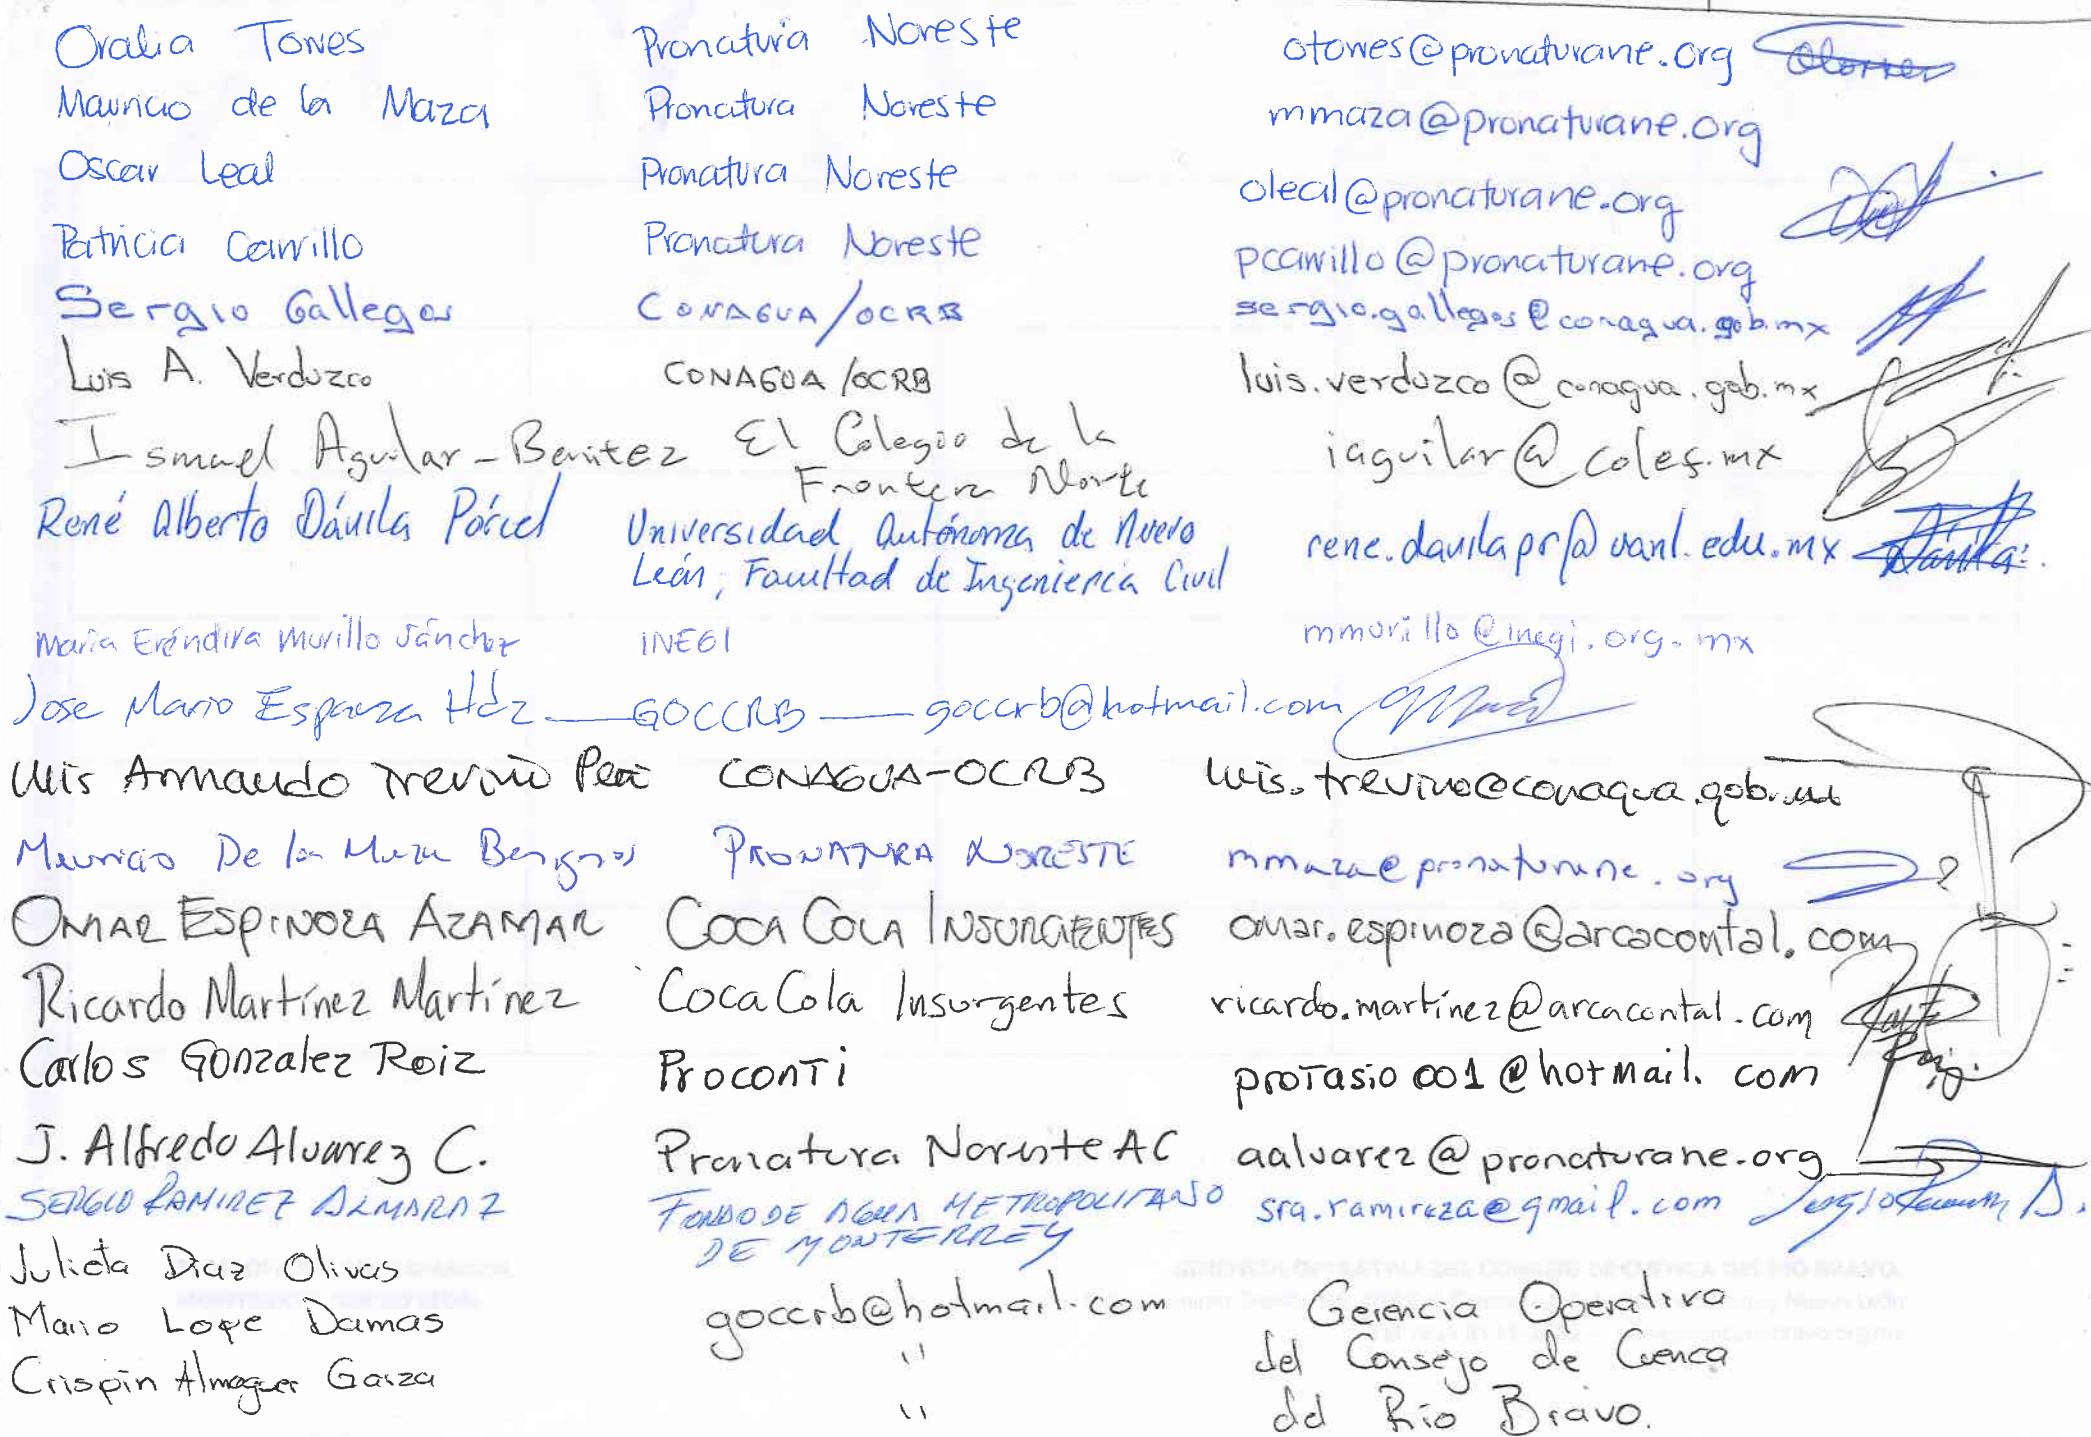 Oralia Torres Pronatura Noreste otorres@pronaturane.org
Mauricio de la Maza Pronatura Noreste mmaza@pronaturane.org
Oscar Leal Pronatura Noreste oleal@pronaturane.org
Patricia Carrillo Pronatura Noreste pcarrillo@pronaturane.org
Sergio Gallegos CONAGUA/OCRB sergio.gallegos@conagua.gob.mx
Luis A. Verduzco CONAGUA/OCRB luis.verduzco@conagua.gob.mx
Ismael Aguilar-Benitez El Colegio de la iaguilar@colef.mx
Frontera Norte
René Alberto Dávila Pórcel Universidad Autónoma de Nuevo rene.davilapr@uanl.edu.mx Dávila
León, Facultad de Ingeniería Civil
María Eréndira Murillo Sánchez INEGI mmurillo@inegi.org.mx
Jose Mario Esparza Hdz GOCCRB goccrb@hotmail.com
Luis Armando Treviño CONAGUA-OCRB luis.trevino@conagua.gob.mx
Mauricio De la Maza Benignos PRONATURA NORESTE mmaza@pronaturane.org
OMAR ESPINOZA AZAMAR COCA COLA INSURGENTES omar.espinoza@arcacontal.com
Ricardo Martínez Martínez Coca Cola Insurgentes ricardo.martínez@arcacontal.com
Carlos Gonzalez Roiz Proconti protasio001@hotmail.com
J. Alfredo Alvarez C. Pronatura Noreste AC aalvarez@pronaturane.org
SERGIO RAMIREZ ALMARAZ FONDO DE AGUA METROPOLITANO sra.ramireza@gmail.com
DE MONTERREY
Julieta Diaz Olivas
Mario Lope Damas goccrb@hotmail.com Gerencia Operativa
Crispin Almaguer Garza " del Consejo de Cuenca
" del Río Bravo.